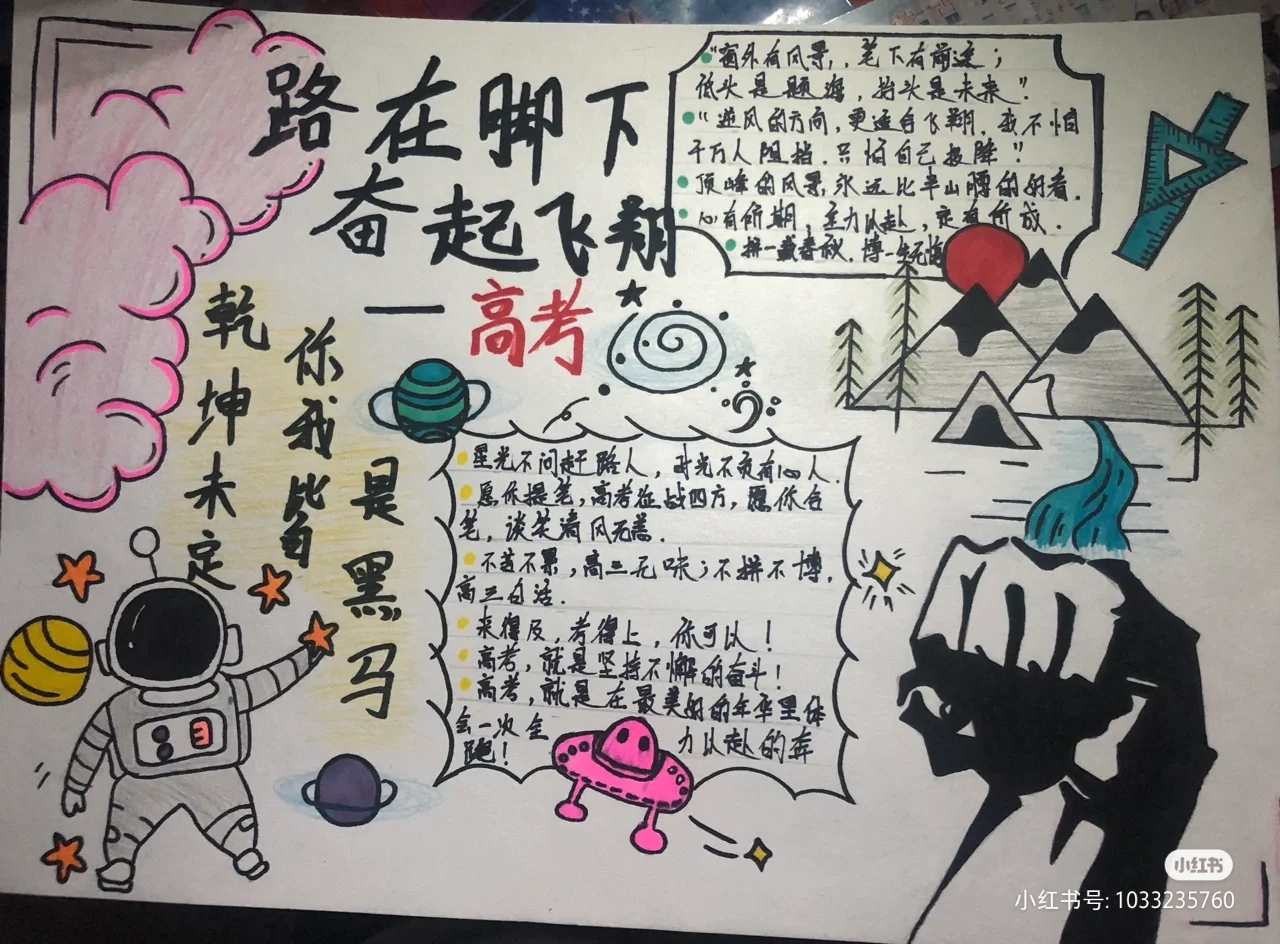 路在脚下
奋起飞翔
—高考
"窗外有风景,笔下有前途;
低头是题海,抬头是未来"
"逆风的方向,更适合飞翔.我不怕
千万人阻挡.只怕自己投降"
顶峰的风景,永远比半山腰的好看.
心有所期,全力以赴,定有所成.
拼一载春秋,博一生无悔
乾坤未定
你我皆
是黑马
星光不问赶路人,时光不负有心人.
愿你提笔,高考征战四方,愿你合
笔,谈笑清风无恙.
不苦不累,高三无味;不拼不博,
高三白活.
来得及,考得上,你可以!
高考,就是坚持不懈的奋斗!
高考,就是在最美好的年华里体
会一次全力以赴的奔
跑!
小红书
小红书号: 1033235760